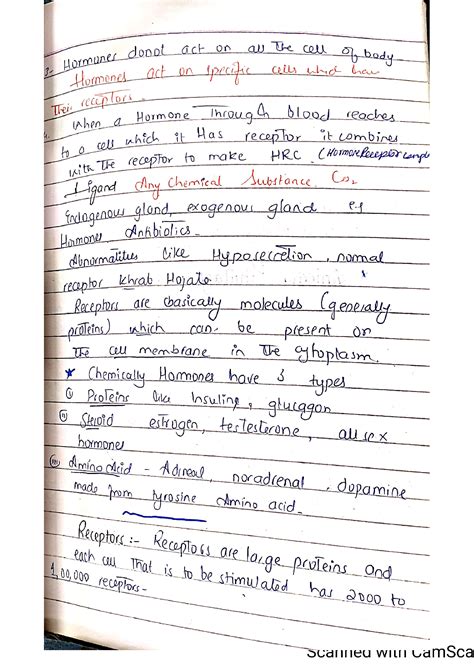 3- Hormones donot act on all the cell of body.
Hormones act on specific cells which have
Their receptors.
When a Hormone Through blood reaches
to a cell which it Has receptor it combines
with The receptor to make HRC (HormoneReceptor Comple
Ligand Any Chemical Substance Co₂
Endogenous gland, exogenous gland e.g
Hormones Antibiotics.
Abnormatilies Like Hyposecretion, normal
receptor Khrab Hojate
Receptors are basically molecules (generally
proteins) which can be present on
The cell membrane in The cytoplasm.
★ Chemically Hormones have 3 types
(i) Proteins like Insuline, glucagon
(ii) Steroid estrogen, testesterone, all sex
hormones
(iii) Amino Acid - Adrineal, noradrenal, dopamine
made from tyrosine Amino acid.
Receptors :- Receptors are large proteins and
each cell That is to be stimulated has 2000 to
1,00,000 receptors-
Scanned with CamSca